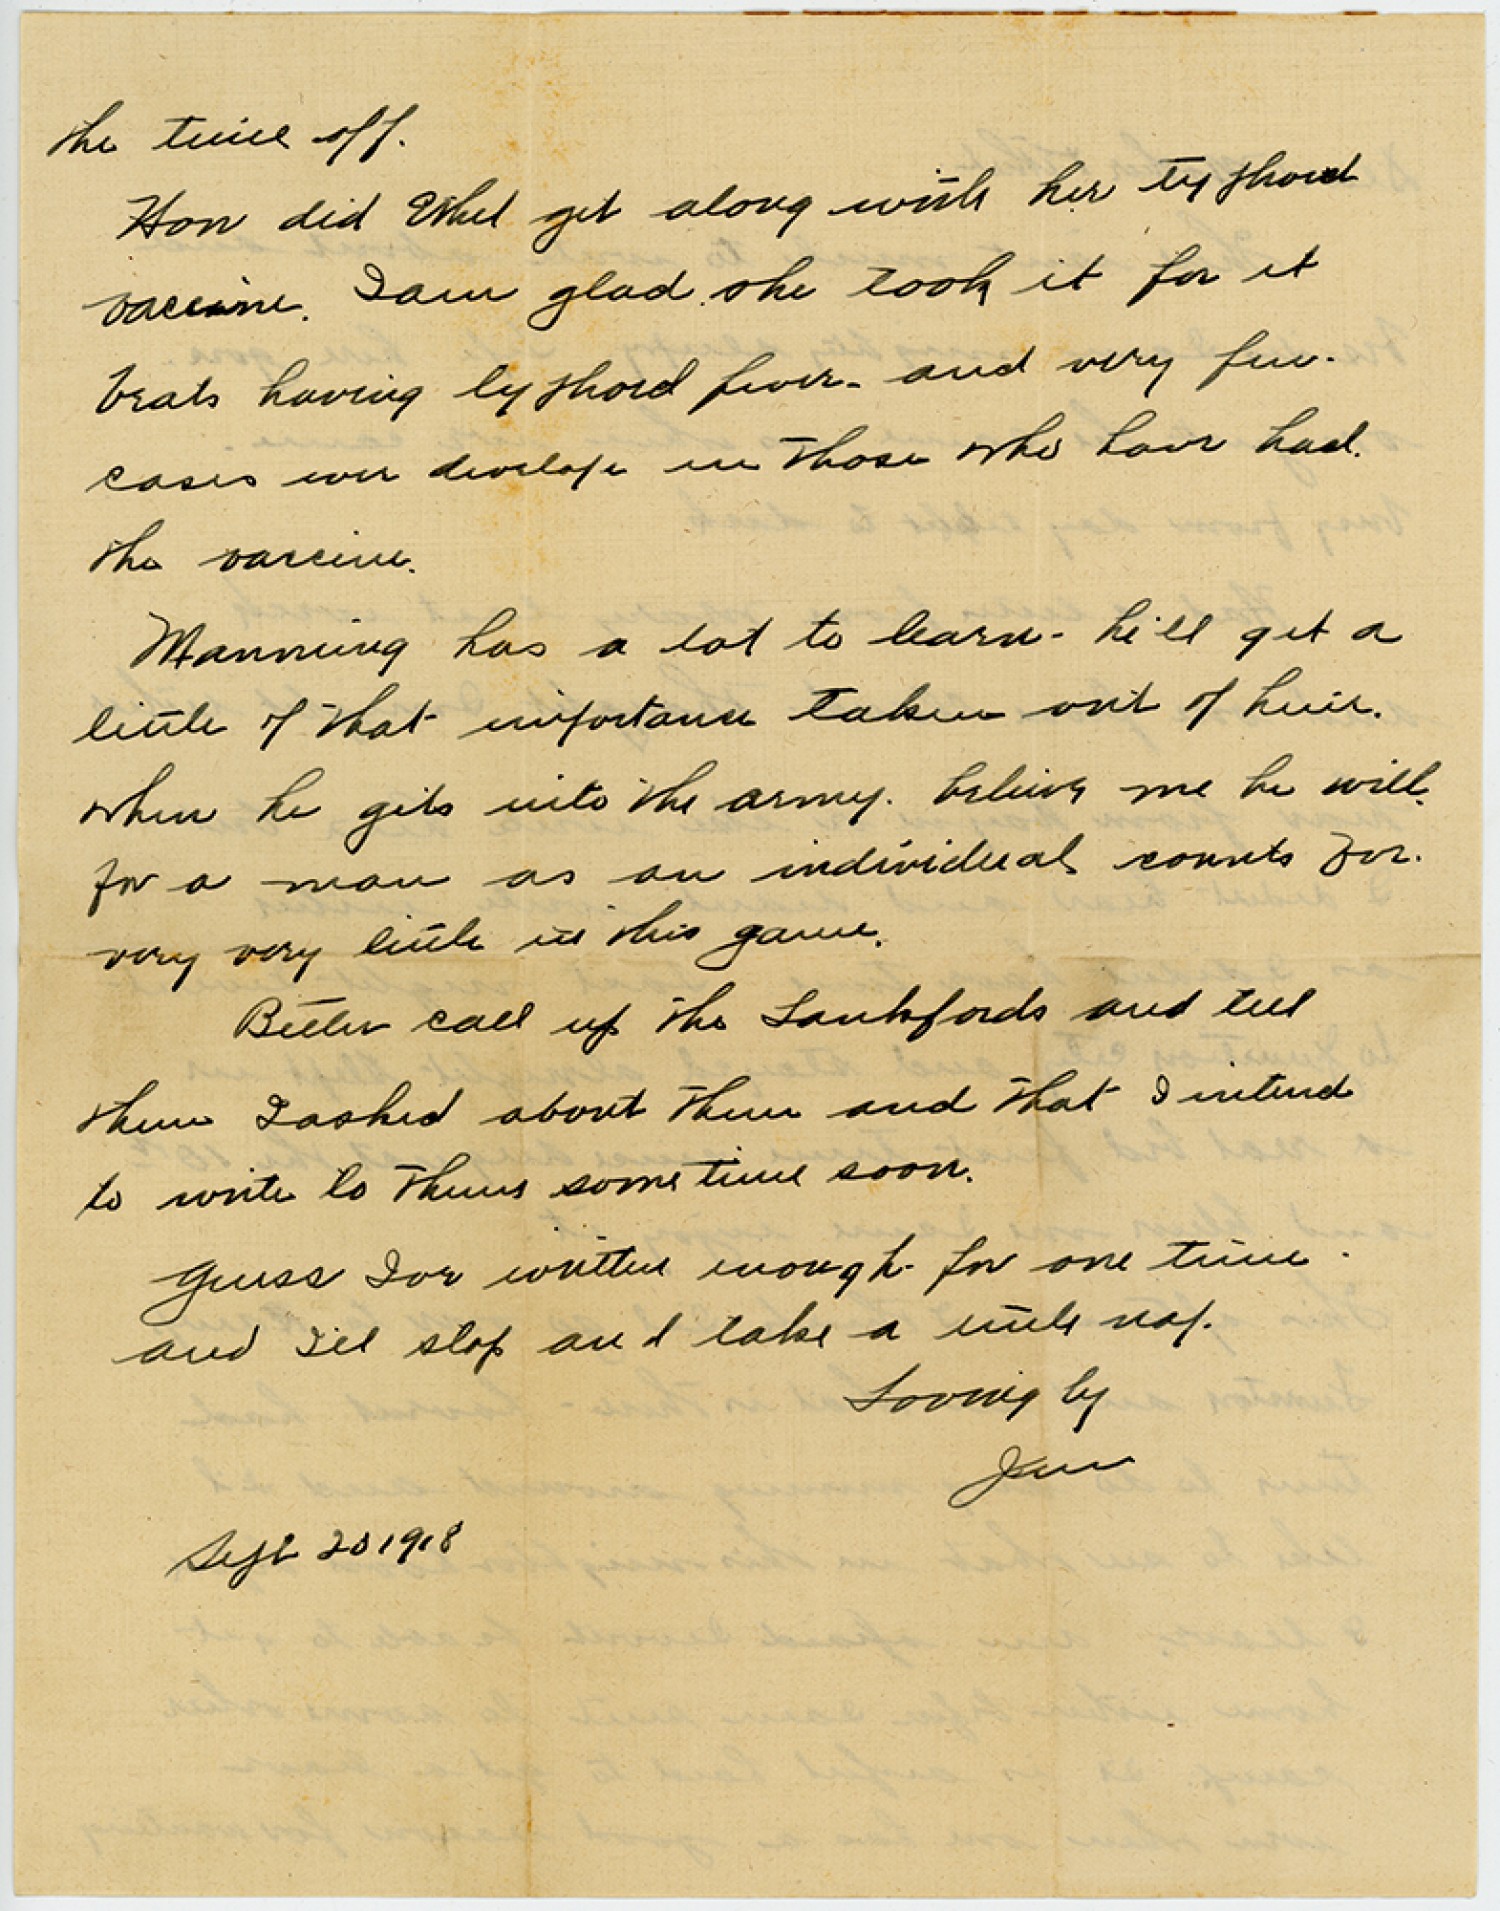 the time off.
How did Ethel get along with her typhoid
vaccine. I am glad she took it for it
beats having typhoid fever - and very few
cases ever develope in those who have had
the vaccine.
Manning has a lot to learn - he'll get a
little of that importance taken out of him.
when he gets into the army. believe me he will.
for a man as an individual counts for
very very little in this game.
Better call up the Lankfords and tell
them I asked about them and that I intend
to write to them sometime soon.
Guess I've written enough for one time.
and I'll stop and take a little nap.
Lovingly
Jim
Sept 20 1918